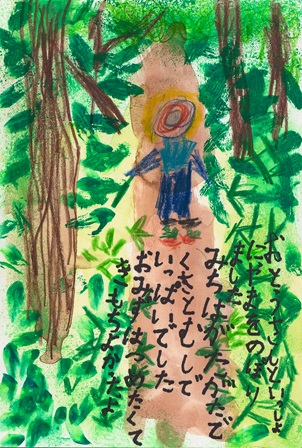 おとうさんといっしょ
にやまをのぼり
ました
みちはがたがたで
くさとむしで
いっぱいでした
おみずはつめたくて
きもちよかたよ